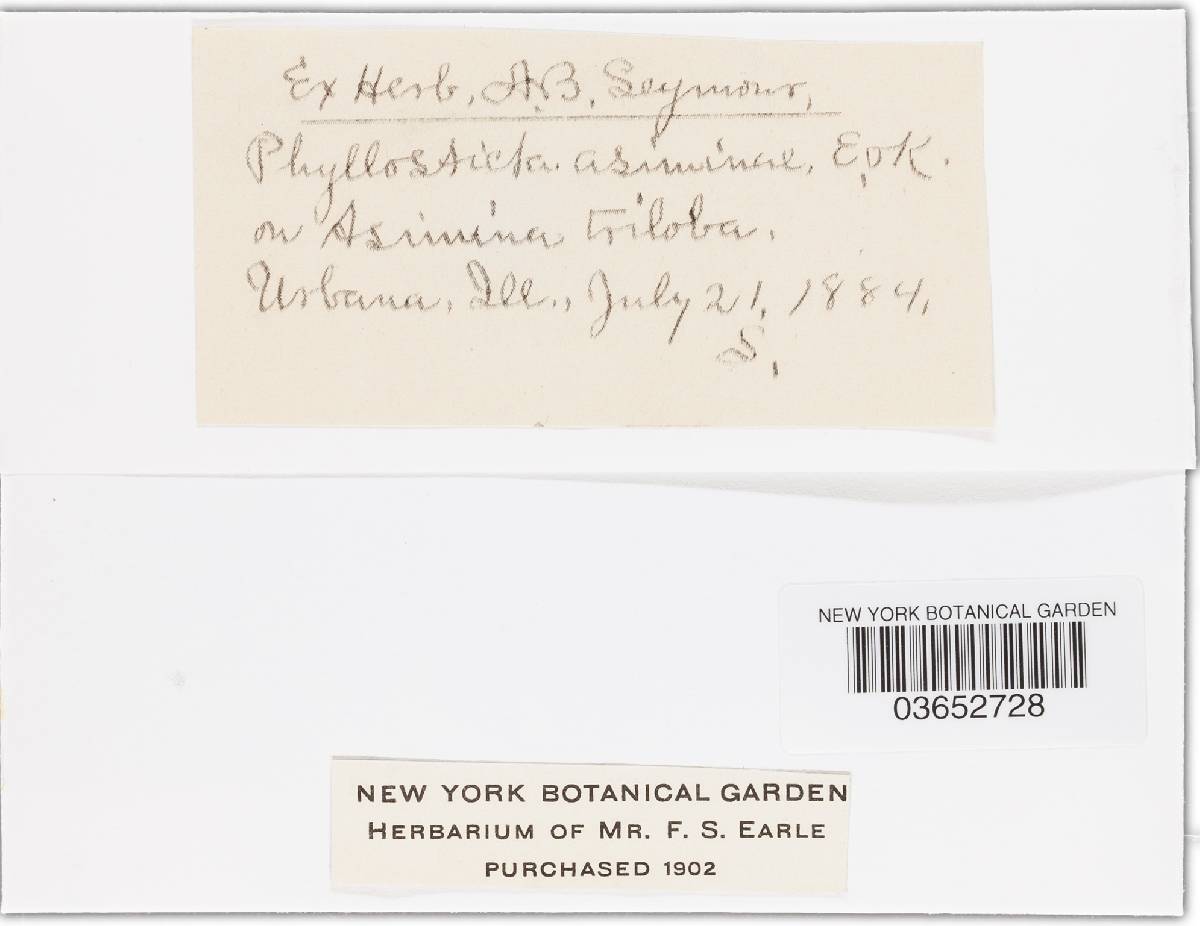 Ex Herb. A.B. Seymour,
Phyllosticta asiminae, E. & K.
on Asimina triloba.
Urbana, Ill., July 21, 1884.
S.
NEW YORK BOTANICAL GARDEN
03652728
NEW YORK BOTANICAL GARDEN
HERBARIUM OF MR. F. S. EARLE
PURCHASED 1902